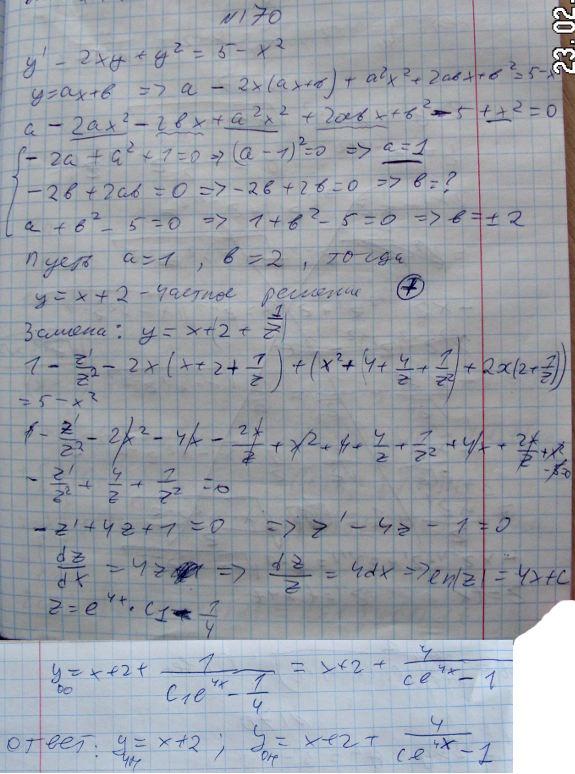 N170
23.02.
y' - 2xy + y² = 5 - x²
y = ax+в => a - 2x(ax+в) + a²x² + 2aвx + в² = 5 - x
a - 2ax² - 2вx + a²x² + 2aвx + в² - 5 + x² = 0
- 2a + a² + 1 = 0 => (a - 1)² = 0 => a = 1
- 2в + 2aв = 0 => -2в + 2в = 0 => в = ?
a + в² - 5 = 0 => 1 + в² - 5 = 0 => в = ± 2
Пусть a = 1, в = 2, тогда
y = x + 2 - частное решение +
Замена: y = x + 2 + 1/z
1 - z'/z² - 2x(x + 2 + 1/z) + (x² + (4 + 4/z + 1/z²) + 2x(2 + 1/z))
= 5 - x²
1 - z'/z² - 2x² - 4x - 2x/z + x² + 4 + 4/z + 1/z² + 4x + 2x/z + x²
- z'/z² + 4/z + 1/z² = 0
- z' + 4z + 1 = 0 => z' - 4z - 1 = 0
dz/dx = 4z => dz/z = 4dx => ln|z| = 4x + C
z = e^4x · C1 - 1/4
y = x + 2 + 1/(C1e^4x - 1/4) = x + 2 + 4/(Ce^4x - 1)
ответ: yчн = x + 2 ; yон = x + 2 + 4/(Ce^4x - 1)